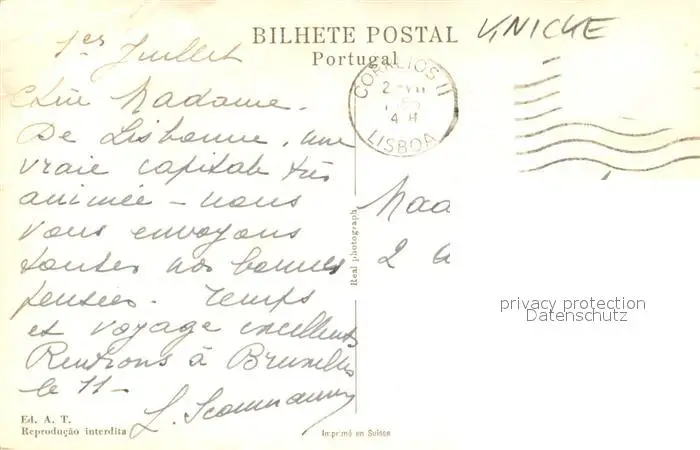 BILHETE POSTAL
Portugal
VINICKE
1er Juillet
Chère Madame.
De Lisbonne, une
vraie capitale très
animée – nous
vous envoyons
toutes nos bonnes
pensées. Temps
et voyage excellents
Rentrons à Bruxelles
le 11 –
CORREIOS II
4 H
LISBOA
Real photograph
Mad
2 a
privacy protection
Datenschutz
Ed. A. T.
Reprodução interdita
Imprimé en Suisse